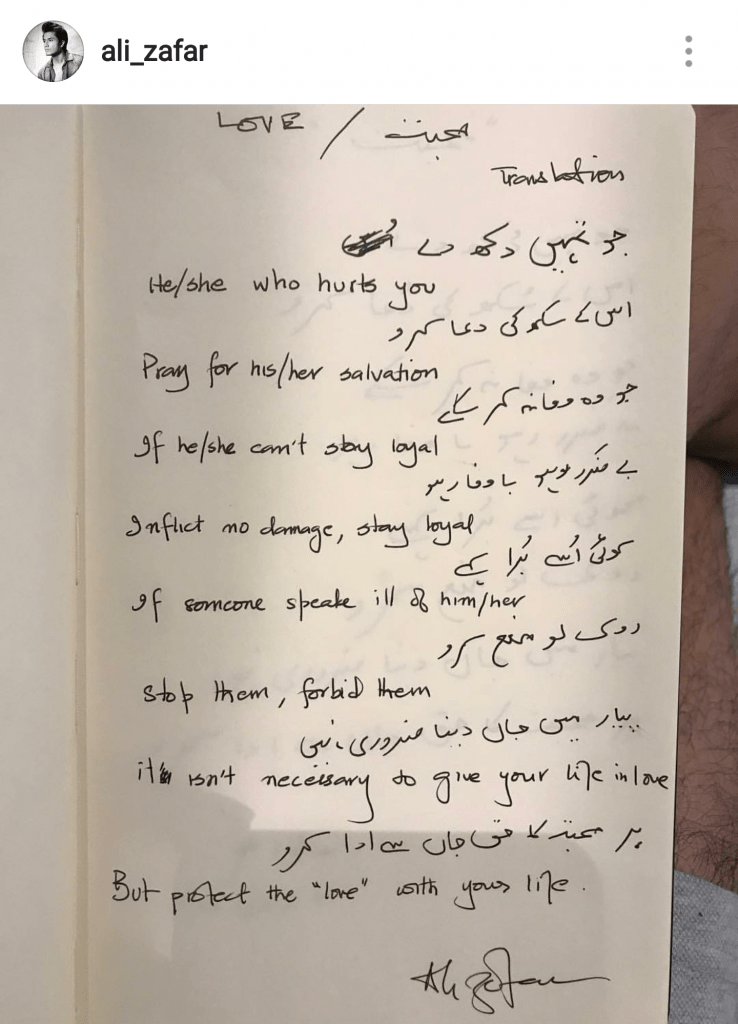 ali_zafar
LOVE / محبت
Translation
جو تمہیں دکھ دے
He/she who hurts you
اس کے سکھ کی دعا کرو
Pray for his/her salvation
جو وہ وفا نہ کر سکے
If he/she can't stay loyal
بے ضرر رہو با وفا رہو
Inflict no damage, stay loyal
کوئی اُسے بُرا کہے
If someone speake ill of him/her
روک لو منع کرو
Stop them, forbid them
پیار میں جاں دینا ضروری نہیں
it isn't necessary to give your life in love
پر محبت کا حق جاں سے ادا کرو
But protect the "love" with your life.
Ali Zafar